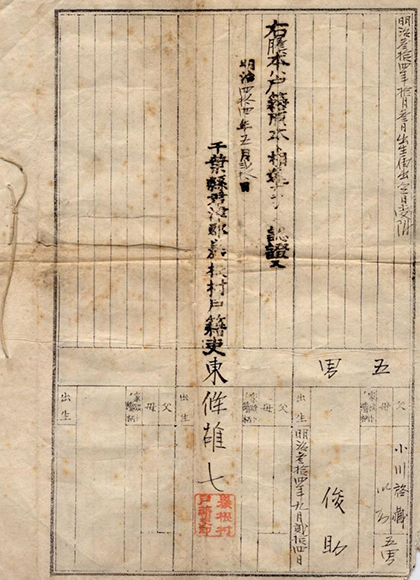 明治参拾四年拾月参日出生届出同日受附
五男
父 小川治
母
五男
出生 明治参拾四年九月弐拾四日
俊助
父
母
出生
父
母
出生
右謄本ハ戸籍原本ト相違ナキヲ認證ス
明治四拾四年五月
千葉縣君津郡根村戸籍吏東條雄七
根村戸籍吏印